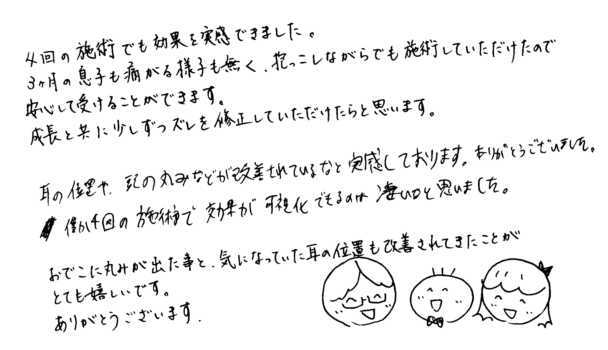 4回の施術でも効果を実感できました。
3ヶ月の息子も痛がる様子も無く、抱っこしながらでも施術していただけたので
安心して受けることができます。
成長と共に少しずつズレを修正していただけたらと思います。
耳の位置や、頭の丸みなどが改善されているなと実感しております。ありがとうございました。
僅か4回の施術で効果が可視化できるのは凄いなと思いました。
おでこに丸みが出た事と、気になっていた耳の位置も改善されてきたことが
とても嬉しいです。
ありがとうございます.